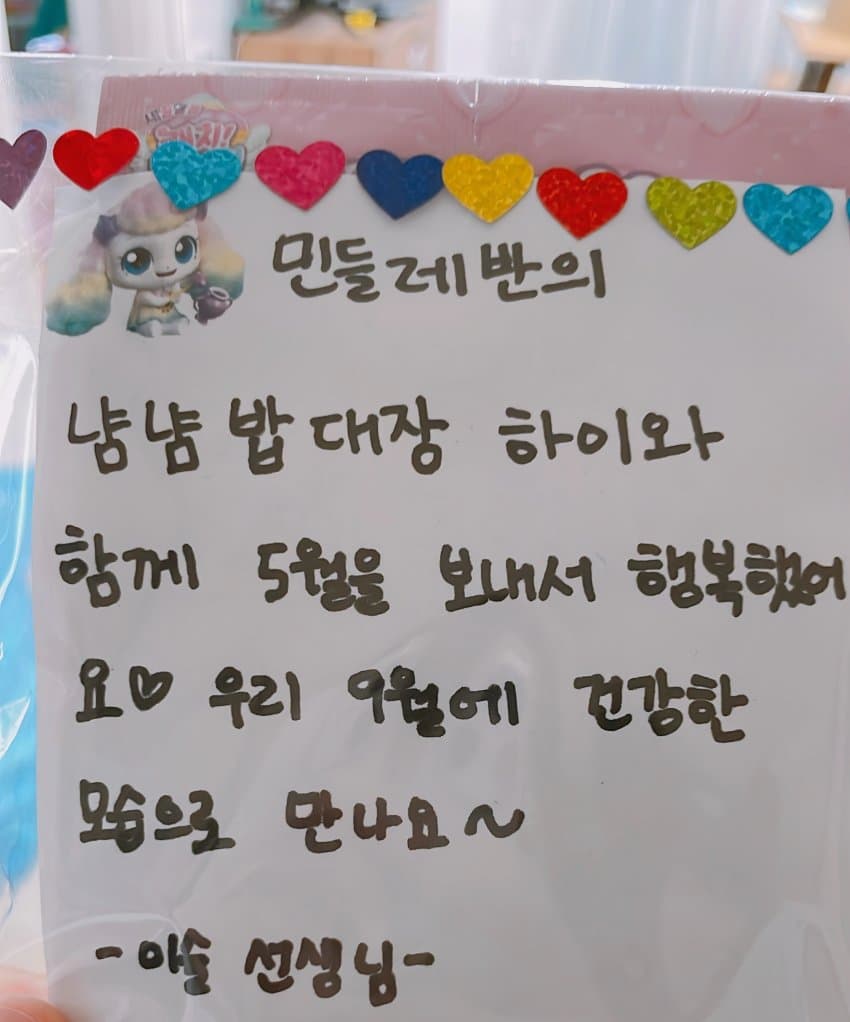 민들레반의
냠냠밥대장 하이와
함께 5월을 보내서 행복했어
요♡ 우리 9월에 건강한
모습으로 만나요~
-이솔 선생님-